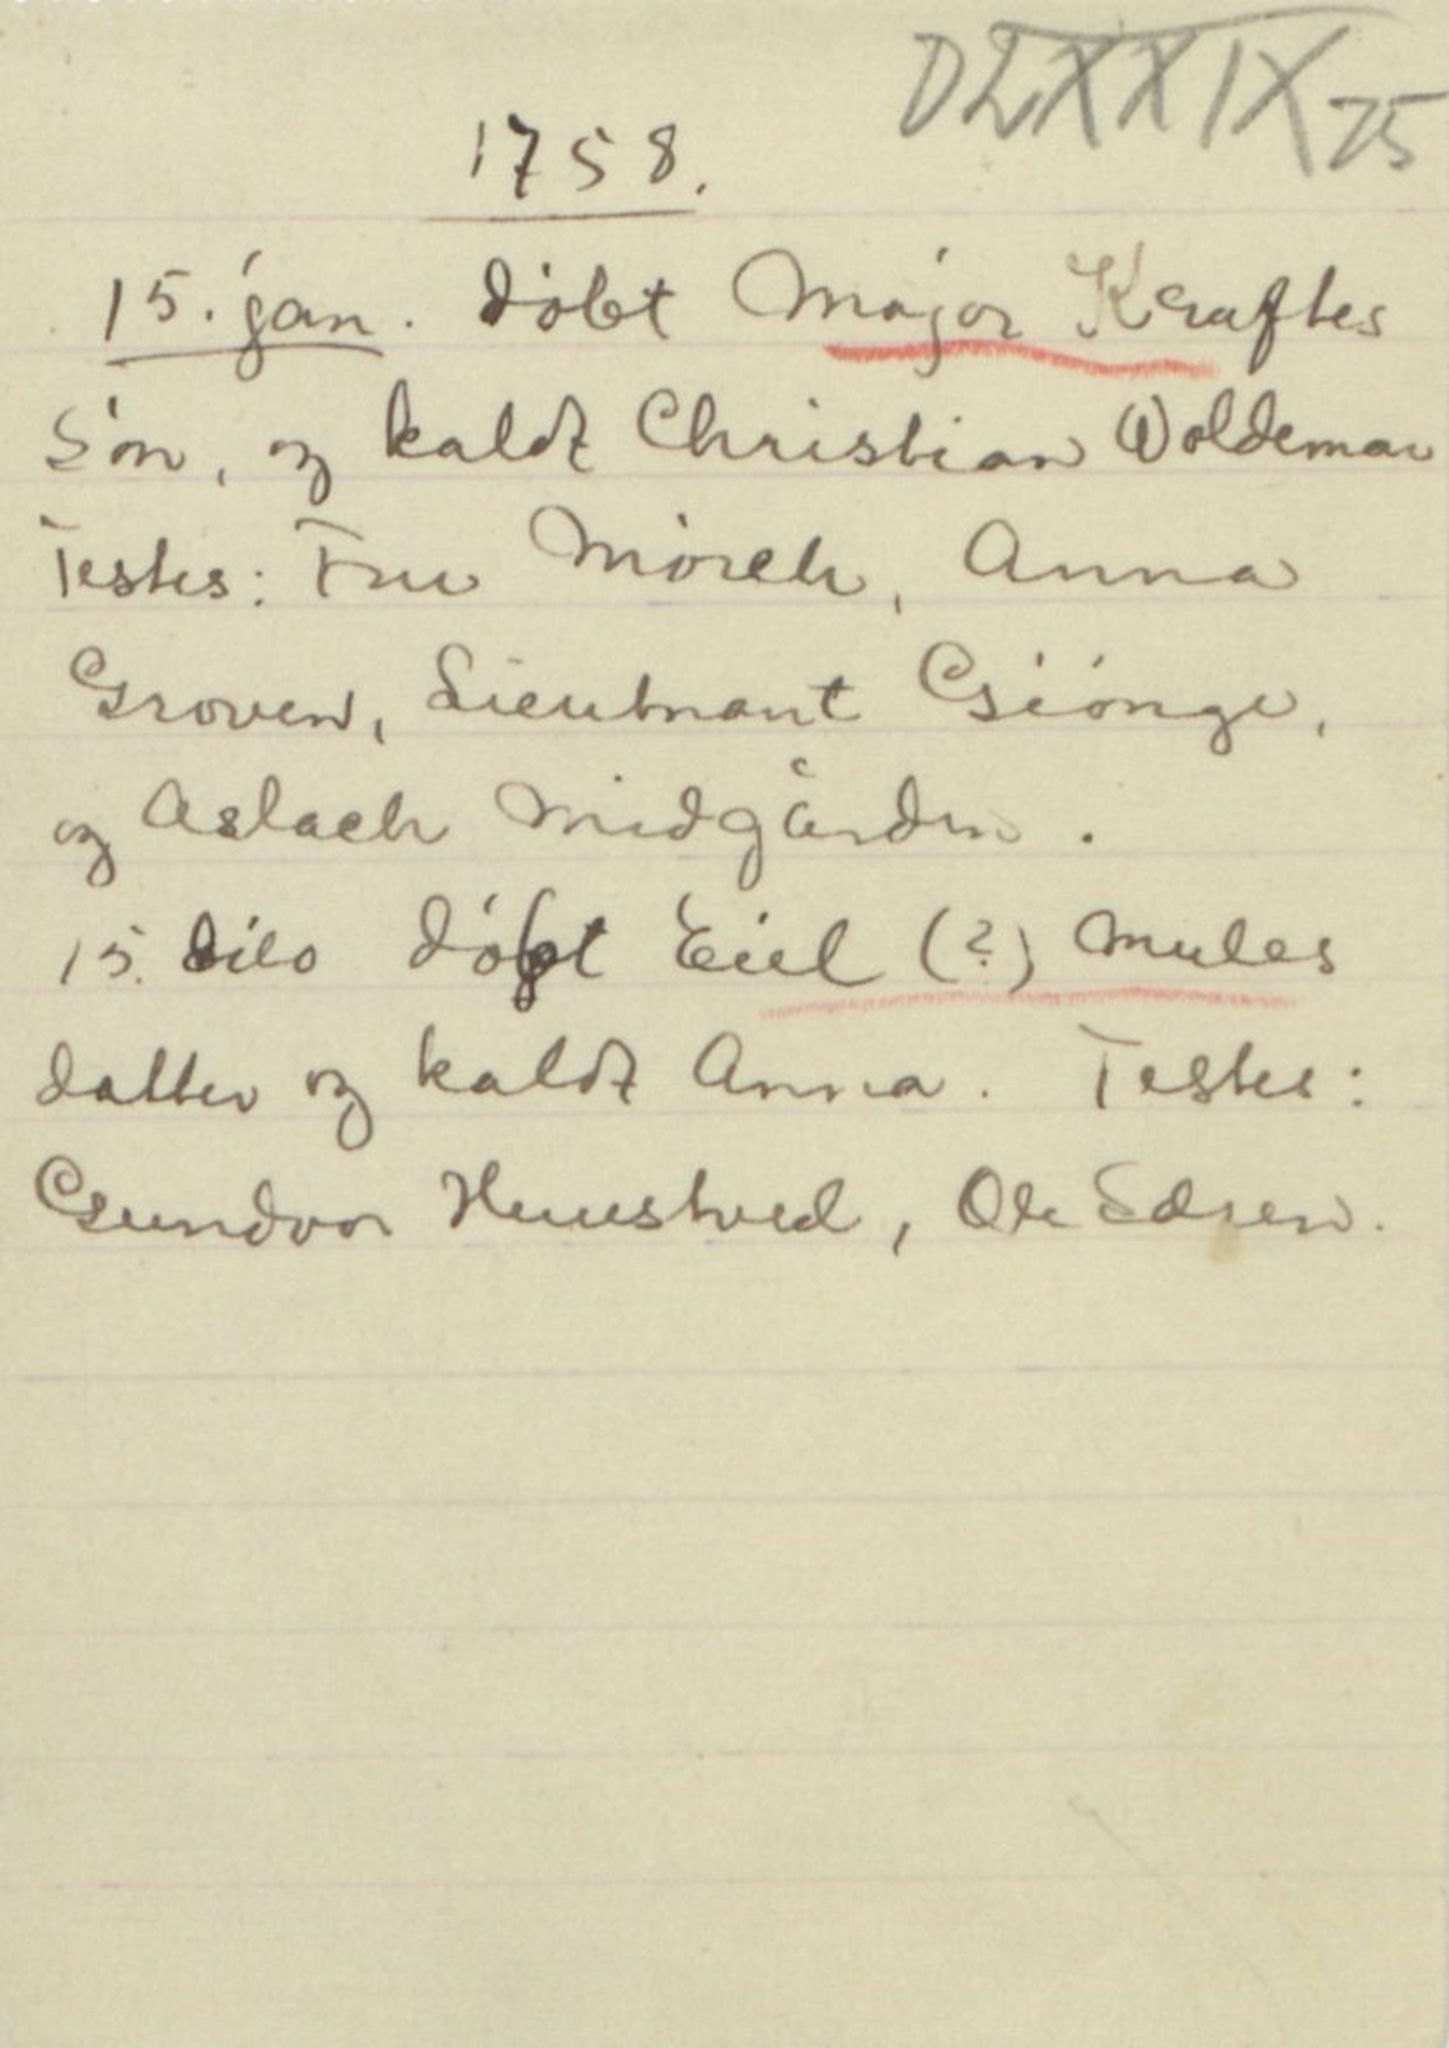 DLXXIX 25
1758.
15. jan. döbt Major Kraftes
Sön, og kaldt Christian Woldemar
Testes: Fru Mörch, Anna
Groven, Lieutnant Giönge,
og Aslach Midgården.
15. dito döpt Eiel (?) Mules
datter og kaldt Anna. Testes:
Gundvor Huustved, Ole